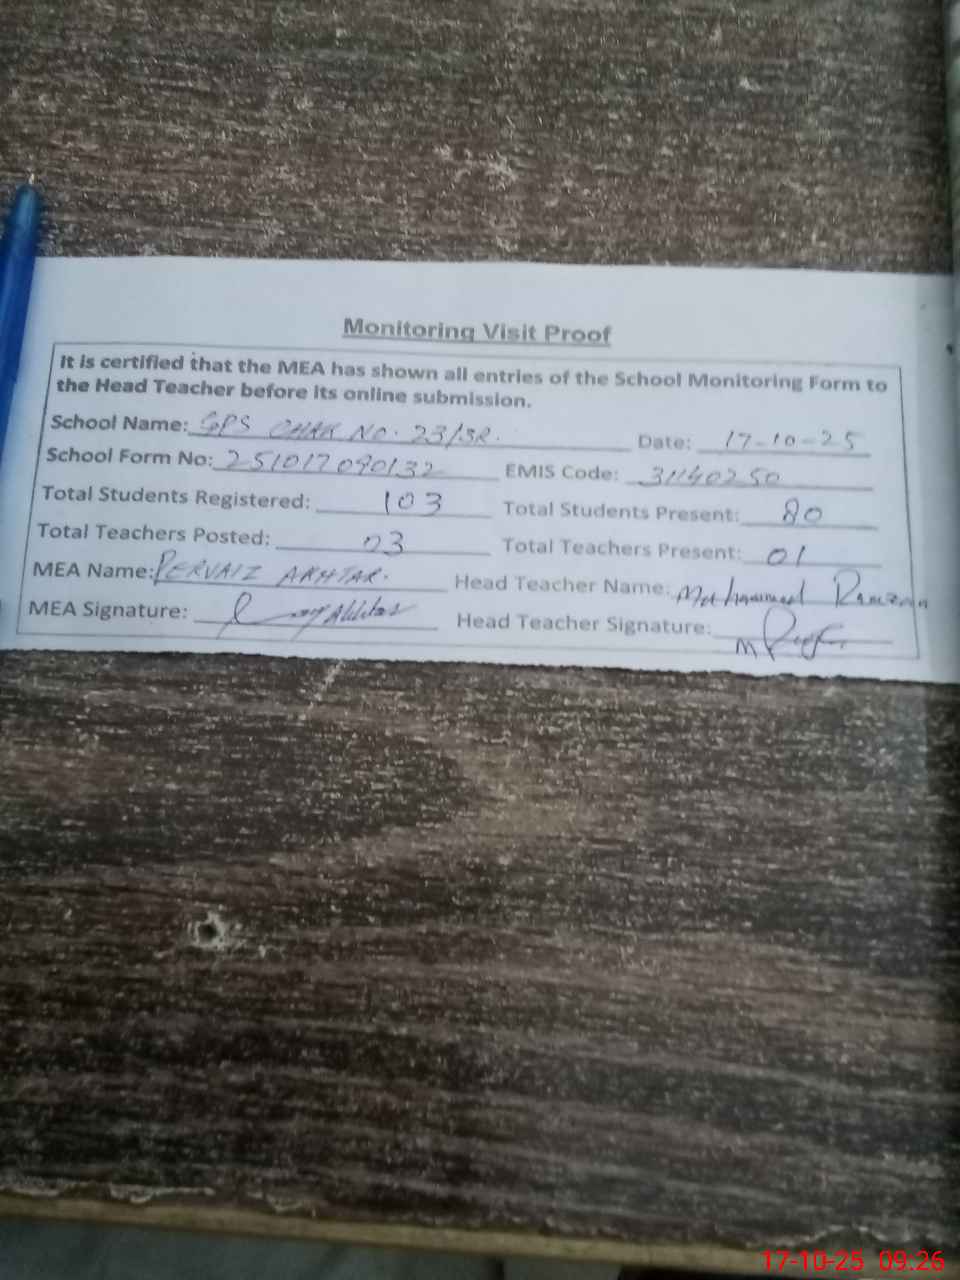 Monitoring Visit Proof
It is certified that the MEA has shown all entries of the School Monitoring Form to
the Head Teacher before its online submission.
School Name: GPS CHAK NO. 23/3R. Date: 17-10-25
School Form No: 251017090132 EMIS Code: 31140250
Total Students Registered: 103 Total Students Present: 80
Total Teachers Posted: 03 Total Teachers Present: 01
MEA Name: PERVAIZ AKHTAR. Head Teacher Name: Muhammad Ramzan
MEA Signature: Head Teacher Signature:
17-10-25 09:26